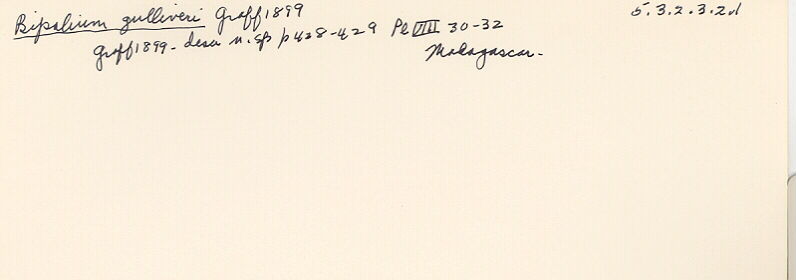 Bipalium gulliveri Graff 1899 5.3.2.3.2d
Graff 1899 - descr n.sp p 428-429 Pl VIII 30-32
Madagascar.